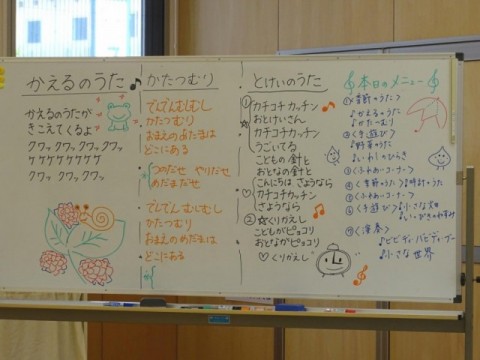 かえるのうた♪
かえるのうたが
きこえてくるよ
クワッ クワッ クワッ クワッ
ケケケケケケケケ
クワッ クワッ クワッ
かたつむり
でんでんむしむし
かたつむり
おまえのあたまは
どこにある
つのだせ やりだせ
めだまだせ
でんでんむしむし
かたつむり
おまえのめだまは
どこにある
とけいのうた
① カチコチカッチン
おとけいさん
カチコチカッチン
うごいてる
こどもの針と
おとなの針と
こんにちは さようなら
♡ カチコチカッチン
さようなら
② ☆くりかえし
こどもがピョコリ
おとながピョコリ
♡くりかえし
本日のメニュー
①〈季節のうた〉
♪かえるのうた
♪かたつむり
②〈手遊び〉
♪野菜のうた
♪いわしのひらき
③〈ふれあいコーナー〉
♪時計のうた
♪小さな世界